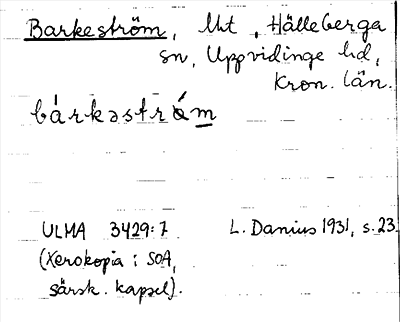 Barkeström, lht, Hälleberga
sn, Uppvidinge hd,
Kron. län.
bárkəstróm
ULMA 3429:7 L. Danius 1931, s. 23.
(Xerokopia i SOA,
särsk. kapsel).